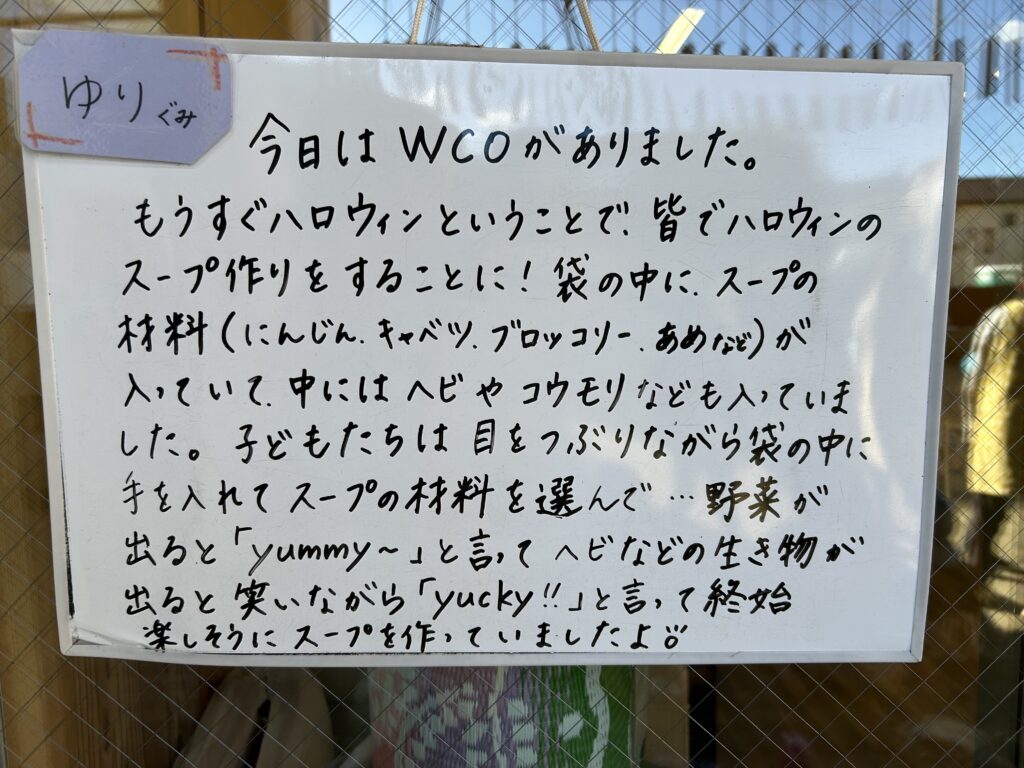 ゆりぐみ
今日はWCOがありました。
もうすぐハロウィンということで、皆でハロウィンの
スープ作りをすることに！袋の中に、スープの
材料(にんじん、キャベツ、ブロッコリー、あめなど)が
入っていて、中にはヘビやコウモリなども入っていま
した。子どもたちは目をつぶりながら袋の中に
手を入れてスープの材料を選んで…野菜が
出ると「yummy~」と言ってヘビなどの生き物が
出ると笑いながら「yucky!!」と言って終始
楽しそうにスープを作っていましたよ